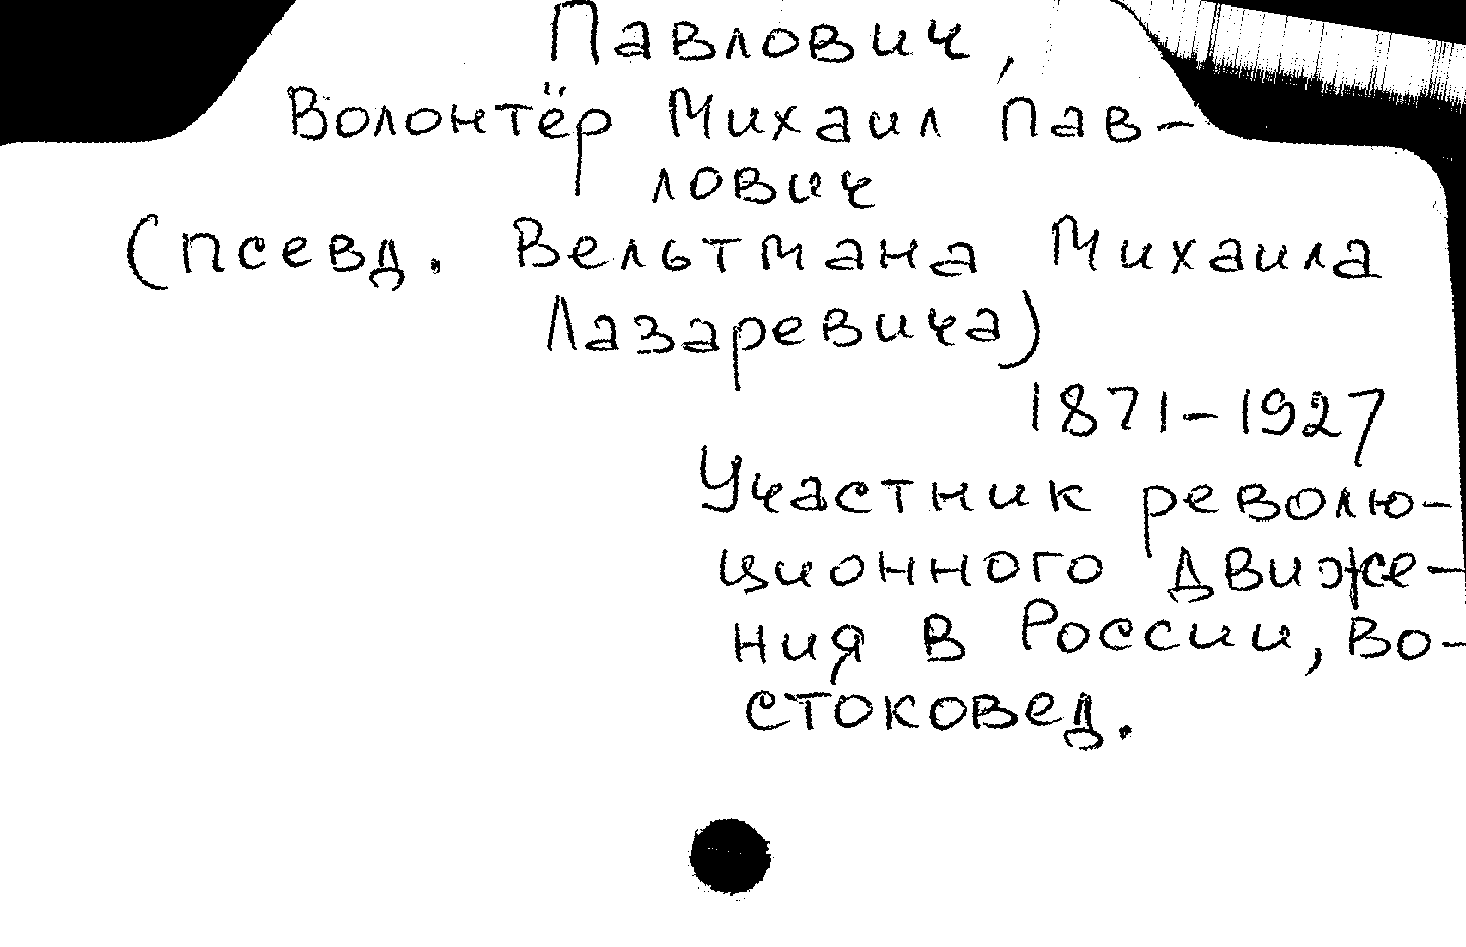 Павлович,
Волонтёр Михаил Пав-
лович
(псевд. Вельтмана Михаила
Лазаревича)
1871-1927
Участник револю-
ционного движе-
ния в России, во-
стоковед.